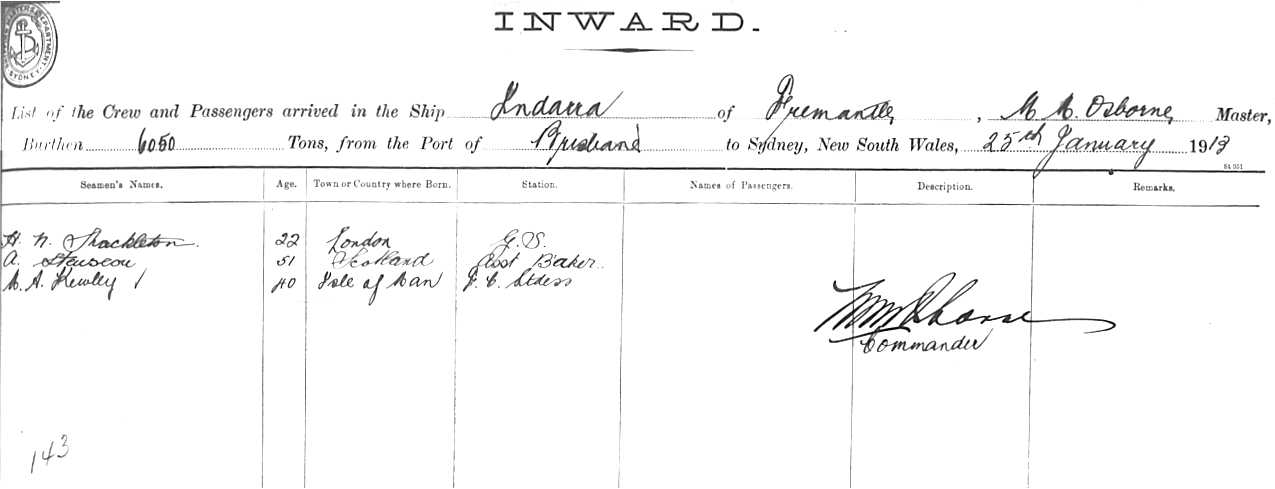 INWARD.
SYDNEY
List of the Crew and Passengers arrived in the Ship Indarra of Fremantle, M. M. Osborne, Master,
Burthen 6050 Tons, from the Port of Brisbane to Sydney, New South Wales, 25th January 1913
Seamen's Names. Age. Town or Country where Born. Station. Names of Passengers. Description. Remarks.
H. N. Shackleton. 22 London G. S.
A. 51 Scotland Asst Baker
M. A. Kewley 40 Isle of Man F. C. Stdess
Commander
143